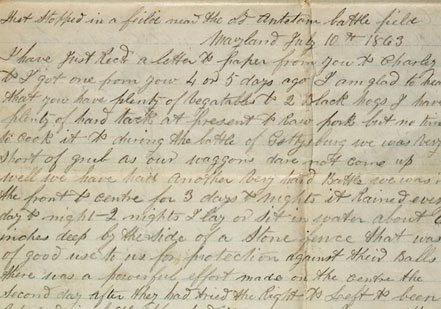 Just Stopped in a field near the old Antetam battle field
Maryland July 10th 1863
I have Just Recd a letter & paper from you & Charley
& I got one from you 4 or 5 days ago I am glad to hear
that you have plenty of begatable & 2 black hogs I have
plenty of hard tack at present & Raw pork but no time
to cook it & during the battle of Gettysburg we was very
short of grub as our waggons dare not come up
well we have had another very hard Battle we was in
the front & centre for 3 days & nights it Rained every
day & night 2 nights I lay or sit in water about
inches deep by the side of a Stone fence that was
of good use to us for protection against their Balls
there was a powerful effort made on the centre the
second day after they had tried the Right & Left & been